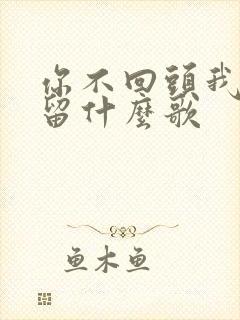 你不回頭我
留什麼歌
鱼木鱼